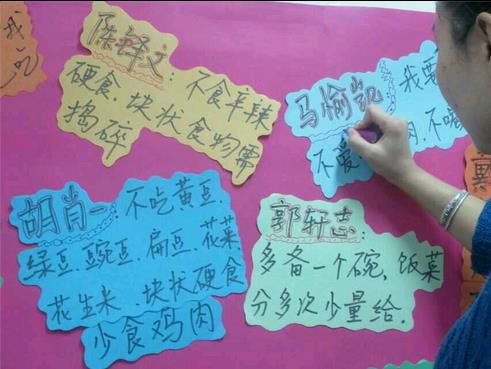 我
吃
陈铎文：不食辛辣
硬食.块状食物需
捣碎
马愉凯 我要
不爱 肉.不喝
胡肖一：不吃黄豆.
绿豆.豌豆.扁豆.花菜
花生米.块状硬食
少食鸡肉
郭轩志：
多备一个碗、饭菜
分多次少量给.